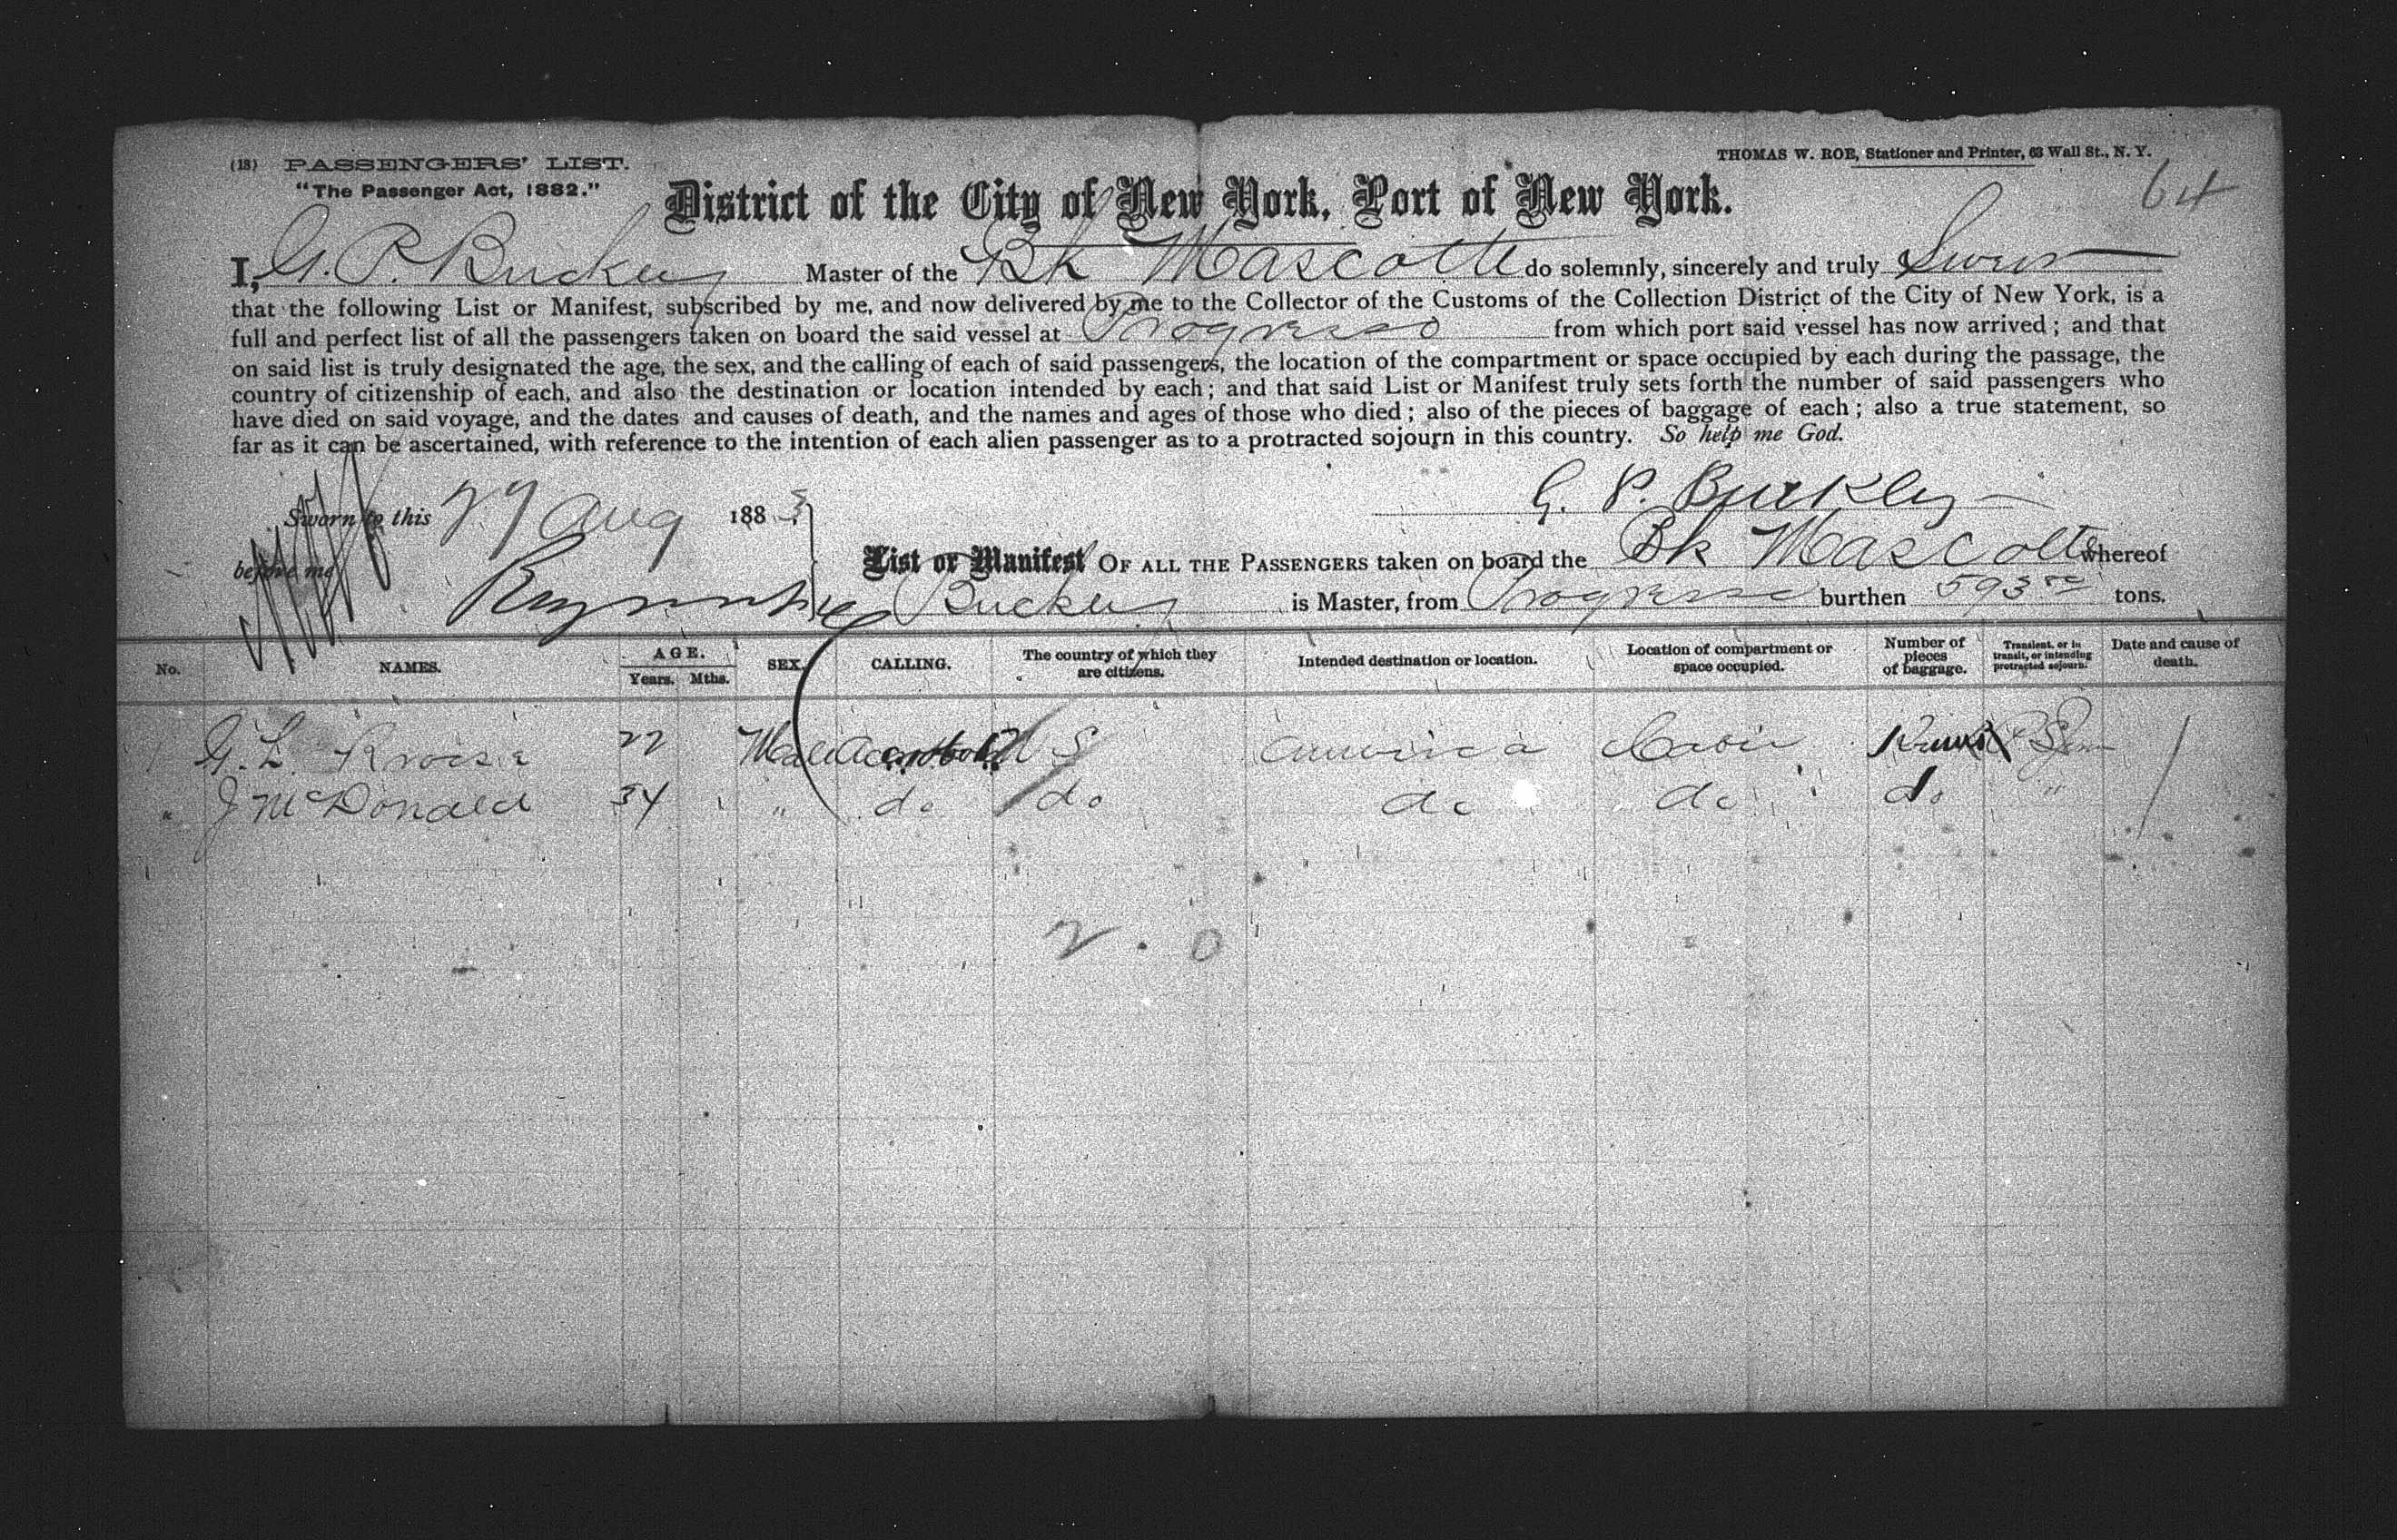 (18) PASSENGERS' LIST.
THOMAS W. ROE, Stationer and Printer, 63 Wall St., N. Y.
"The Passenger Act, 1882."
64
District of the City of New York, Port of New York.
I, G. P. Buckley Master of the Bk Mascotte do solemnly, sincerely and truly Swear
that the following List or Manifest, subscribed by me, and now delivered by me to the Collector of the Customs of the Collection District of the City of New York, is a
full and perfect list of all the passengers taken on board the said vessel at Progreso from which port said vessel has now arrived; and that
on said list is truly designated the age, the sex, and the calling of each of said passengers, the location of the compartment or space occupied by each during the passage, the
country of citizenship of each, and also the destination or location intended by each; and that said List or Manifest truly sets forth the number of said passengers who
have died on said voyage, and the dates and causes of death, and the names and ages of those who died; also of the pieces of baggage of each; also a true statement, so
far as it can be ascertained, with reference to the intention of each alien passenger as to a protracted sojourn in this country. So help me God.
G. P. Buckley
Sworn to this 27 Aug 1883
before me
List or Manifest OF ALL THE PASSENGERS taken on board the Bk Mascotte whereof
Buckley is Master, from Progreso burthen 593 tons.
No. NAMES. AGE. Years. Mths. SEX. CALLING. The country of which they are citizens. Intended destination or location. Location of compartment or space occupied. Number of pieces of baggage. Transient, or in transit, or intending protracted sojourn. Date and cause of death.
G. L. 22 Male U S America Cabin
" J McDonald 34 " do do do do do "
2 . 0